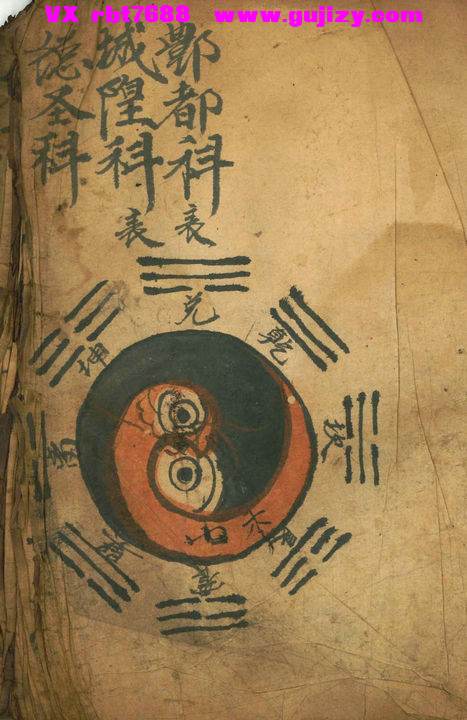 VX rbt7688 www.gujizy.com
酆都科表
城隍科表
圣科
兌
乾
坎
艮
震
坤